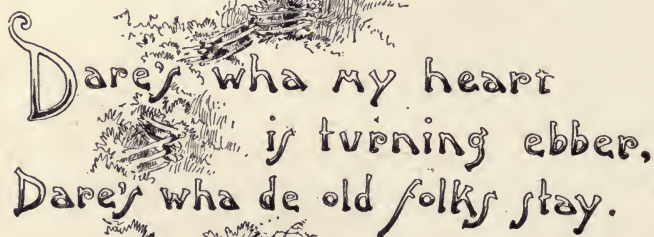 Dare's wha my heart
is turning ebber,
Dare's wha de old folks stay.